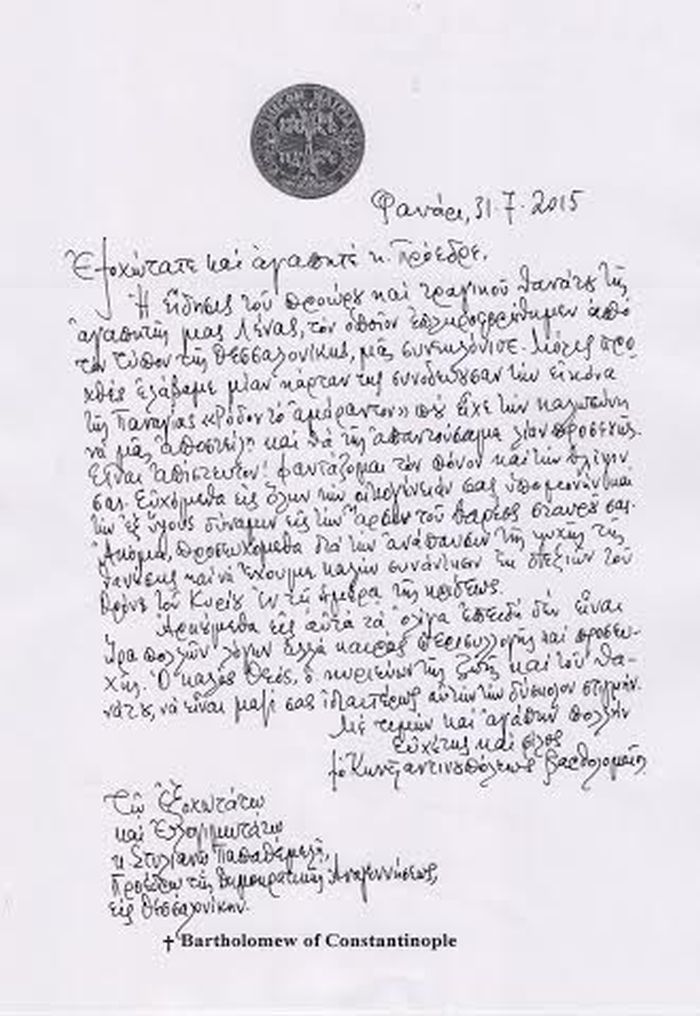 Φανάρι, 31.7.2015
Ἐξοχώτατε καὶ ἀγαπητέ κ. Πρόεδρε,
Ἡ εἴδησις τοῦ προώρου καὶ τραγικοῦ θανάτου τῆς
ἀγαπητῆς μας Λένας, τὸν ὁποῖον ἐπληροφορήθημεν ἀπὸ
τὸν τύπον τῆς Θεσσαλονίκης, μᾶς συνεκλόνισε. Μόλις προ
χθὲς ἐλάβαμε μίαν κάρταν της συνοδεύουσαν τὴν εἰκόνα
τῆς Παναγίας «Ρόδον τὸ ἀμάραντον» ποὺ εἶχε τὴν καλωσύνη
νὰ μᾶς ἀποστείλῃ καὶ θὰ τῆς ἀπαντούσαμε λίαν προσεχῶς.
Εἶναι ἀπίστευτον! Φαντάζομαι τὸν πόνον καὶ τὴν θλῖψιν
σας. Εὐχόμεθα εἰς ὅλην τὴν οἰκογένειάν σας ὑπομονὴν καὶ
τὴν ἐξ ὕψους δύναμιν εἰς τὴν ἄρσιν τοῦ βαρέος σταυροῦ σας.
Ἀκόμα, προσευχόμεθα διὰ τὴν ἀνάπαυσιν τῆς ψυχῆς τῆς
θανούσης καὶ νὰ ἔχουμε καλὴν συνάντησιν ἐκ δεξιῶν τοῦ
θρόνου τοῦ Κυρίου ἐν τῇ ἡμέρᾳ τῆς κρίσεως.
Ἀρκούμεθα εἰς αὐτὰ τὰ ὀλίγα ἐπειδὴ δὲν εἶναι
ὥρα πολλῶν λόγων ἀλλὰ καιρὸς περισυλλογῆς καὶ προσευ-
χῆς. Ὁ καλὸς Θεός, ὁ κυριεύων τῆς ζωῆς καὶ τοῦ θα-
νάτου, νὰ εἶναι μαζί σας ἰδιαιτέρως αὐτὴν τὴν δύσκολον στιγμήν.
Μὲ τιμὴν καὶ ἀγάπην πολλὴν
Εὐχέτης καὶ φίλος
† ὁ Κωνσταντινουπόλεως Βαρθολομαῖος
Τῷ Ἐξοχωτάτῳ
καὶ Ἐλλογιμωτάτῳ
κ. Στυλιανῷ Παπαθεμελῆ,
Προέδρῳ τῆς Δημοκρατικῆς Ἀναγεννήσεως,
εἰς Θεσσαλονίκην.
† Bartholomew of Constantinople